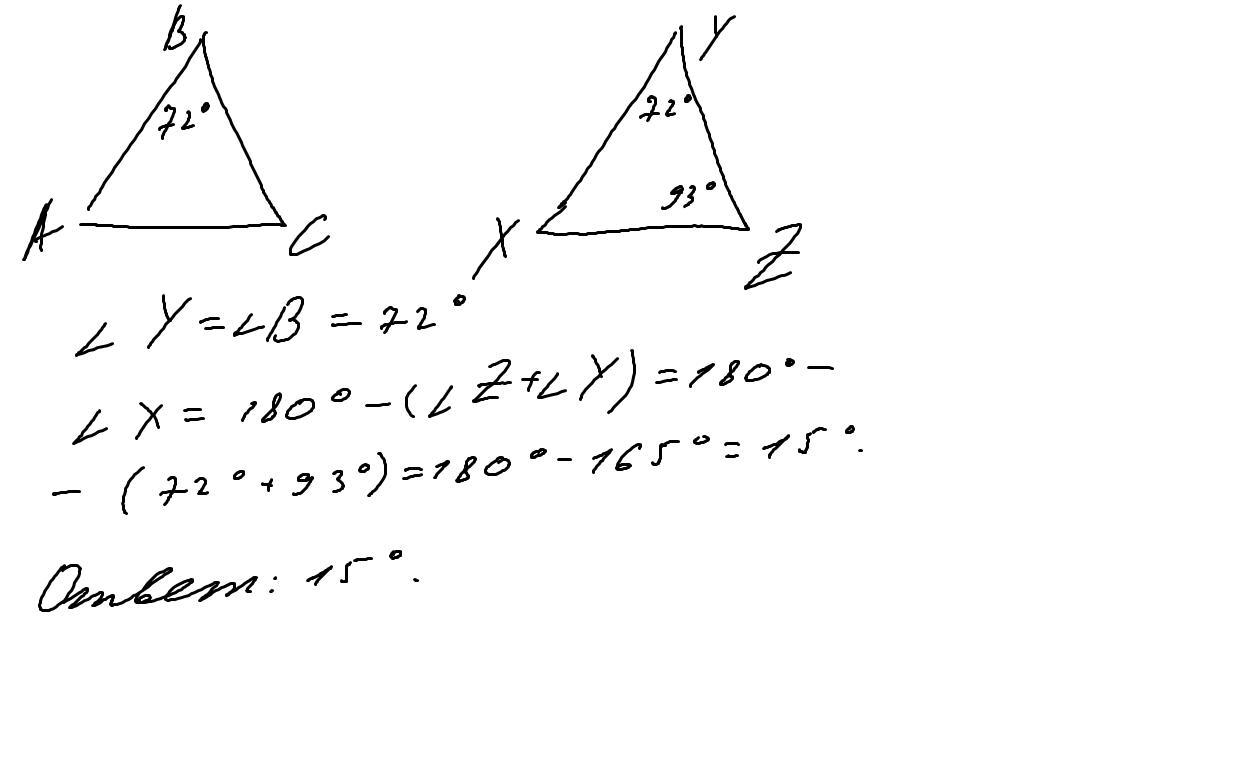 B Y
72° 72°
93°
A C X Z
∠ Y = ∠B = 72°
∠ X = 180° - (∠ Z + ∠ Y) = 180° -
- (72° + 93°) = 180° - 165° = 15°.
Ответ: 15°.